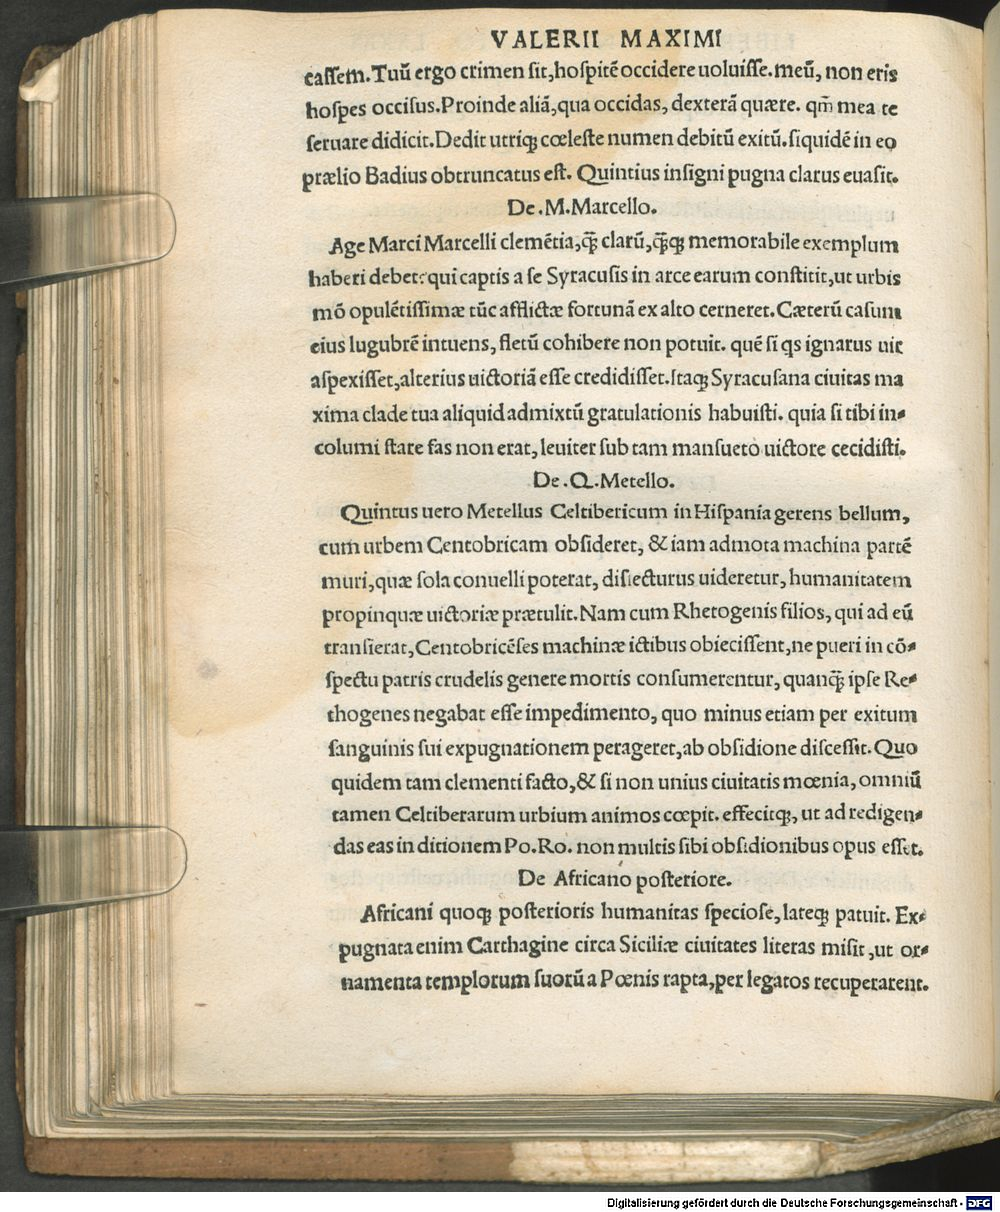 VALERII MAXIMI
caſſem. Tuũ ergo crimen ſit, hoſpitẽ occidere uoluiſſe. meũ, non eris
hoſpes occiſus. Proinde aliã, qua occidas, dexterã quære. qm̃ mea te
ſeruare didicit. Dedit utriq; cœleſte numen debitũ exitũ. ſiquidẽ in eo
prælio Badius obtruncatus eſt. Quintius inſigni pugna clarus euaſit.
De .M. Marcello.
Age Marci Marcelli clemẽtia, q̃ clarũ, q̃q; memorabile exemplum
haberi debet: qui captis a ſe Syracuſis in arce earum conſtitit, ut urbis
mõ opulẽtiſſimæ tũc afflictæ fortunã ex alto cerneret. Cæterũ caſum
eius lugubrẽ intuens, fletũ cohibere non potuit. quẽ ſi qs ignarus uir
aſpexiſſet, alterius uictoriã eſſe credidiſſet. Itaq; Syracuſana ciuitas ma
xima clade tua aliquid admixtũ gratulationis habuiſti. quia ſi tibi in-
columi ſtare fas non erat, leuiter ſub tam manſueto uictore cecidiſti.
De .Q. Metello.
Quintus uero Metellus Celtibericum in Hiſpania gerens bellum,
cum urbem Centobricam obſideret, & iam admota machina partẽ
muri, quæ ſola conuelli poterat, diſiecturus uideretur, humanitatem
propinquæ uictoriæ prætulit. Nam cum Rhetogenis filios, qui ad eũ
tranſierat, Centobricẽſes machinæ ictibus obieciſſent, ne pueri in cõ-
ſpectu patris crudelis genere mortis conſumerentur, quanq̃ ipſe Re-
thogenes negabat eſſe impedimento, quo minus etiam per exitum
ſanguinis ſui expugnationem perageret, ab obſidione diſceſſit. Quo
quidem tam clementi facto, & ſi non unius ciuitatis mœnia, omniũ
tamen Celtiberarum urbium animos cœpit. effecitq;, ut ad redigen-
das eas in ditionem Po. Ro. non multis ſibi obſidionibus opus eſſet.
De Africano poſteriore.
Africani quoq; poſterioris humanitas ſpecioſe, lateq; patuit. Ex-
pugnata enim Carthagine circa Siciliæ ciuitates literas miſit, ut or-
namenta templorum ſuorũ a Pœnis rapta, per legatos recuperarent.
Digitalisierung gefördert durch die Deutsche Forschungsgemeinschaft - DFG